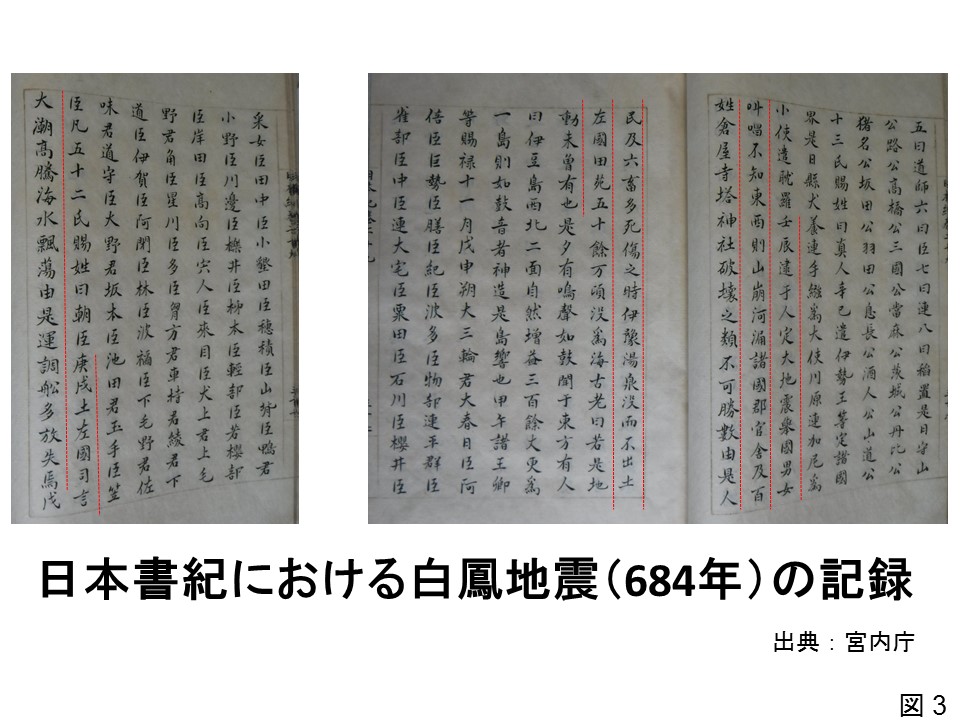 五曰道師六曰臣七曰連八曰稲置是日守山
公路公高橋公三國公當麻公茨城公丹比公
猪名公坂田公羽田公息長公酒人公山道公
十三氏賜姓曰真人辛巳遣伊勢王等定諸國
界是日縣犬養連手繦為大使川原連加尼為
小使遣耽羅壬辰逮于人定大地震擧國男女
叫唱不知東西則山崩河涌諸國郡官舍及百
姓倉屋寺塔神社破壊之類不可勝數由是人
民及六畜多死傷之時伊豫湯泉没而不出土
左國田菀五十餘万頃没為海古老曰若是地
動未曾有也是夕有鳴聲如鼓聞于東方有人
曰伊豆島西北二面自然増益三百餘丈更為
一島則如鼓音者神造是島響也甲午諸王卿
等賜禄十一月戊申朔大三輪君大春日臣阿
倍臣巨勢臣膳臣紀臣波多臣物部連平群臣
雀部臣中臣連大宅臣粟田臣石川臣櫻井臣
采女臣田中臣小墾田臣穂積臣山背臣鴨君
小野臣川邊臣櫟井臣柿本臣輕部臣若櫻部
臣岸田臣高向臣宍人臣來目臣犬上君上毛
野君角臣星川臣多臣胷方君車持君綾君下
道臣伊賀臣阿閇臣林臣波福臣下毛野君佐
味君道守臣大野君坂本臣池田君玉手臣笠
臣凡五十二氏賜姓曰朝臣庚戌土左國司言
大潮高騰海水飄蕩由是運調舩多放失焉戊
日本書紀における白鳳地震(684年)の記録
出典：宮内庁
図3